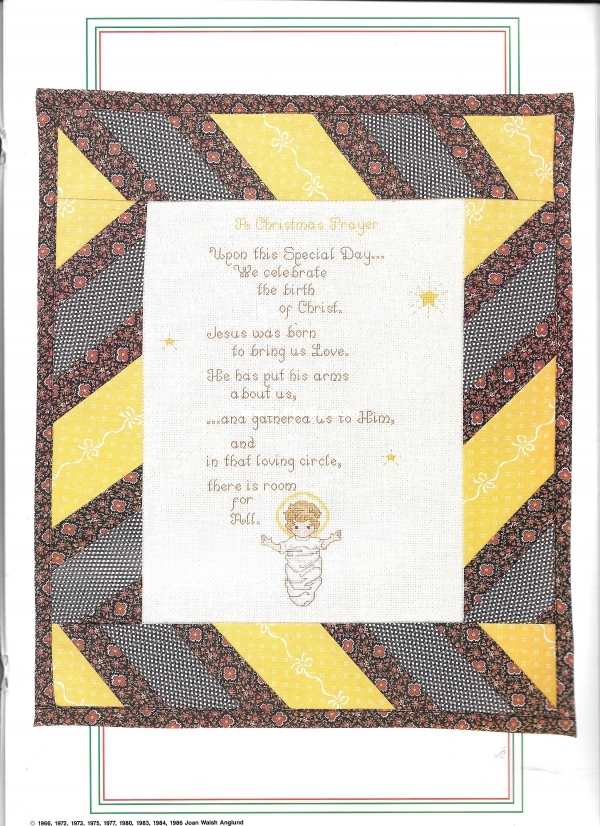 A Christmas Prayer
Upon this Special Day...
We celebrate
the birth
of Christ.
Jesus was born
to bring us Love.
He has put his arms
about us,
...and gathered us to Him,
and
in that loving circle,
there is room
for
All.
© 1966, 1972, 1973, 1975, 1977, 1980, 1983, 1984, 1986 Joan Walsh Anglund